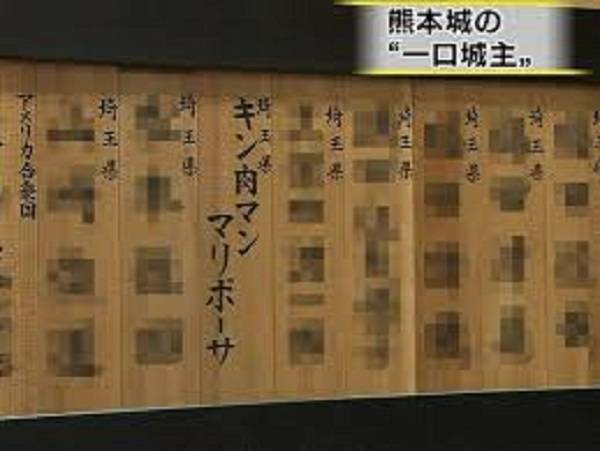 熊本城の
“一口城主„
埼玉県
埼玉県
埼玉県
埼玉県
埼玉県
キン肉マン
マリポーサ
埼玉県
埼玉県
埼玉県
アメリカ合衆国